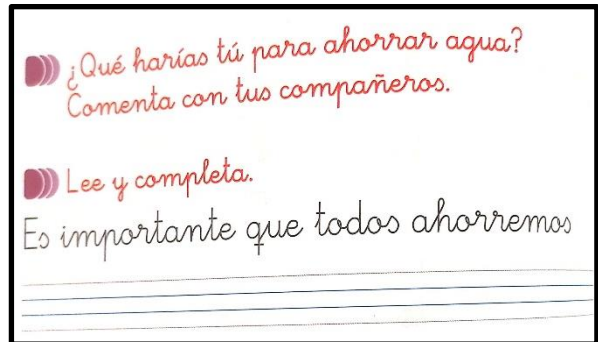 ¿Qué harías tú para ahorrar agua?
Comenta con tus compañeros.
Lee y completa.
Es importante que todos ahorremos